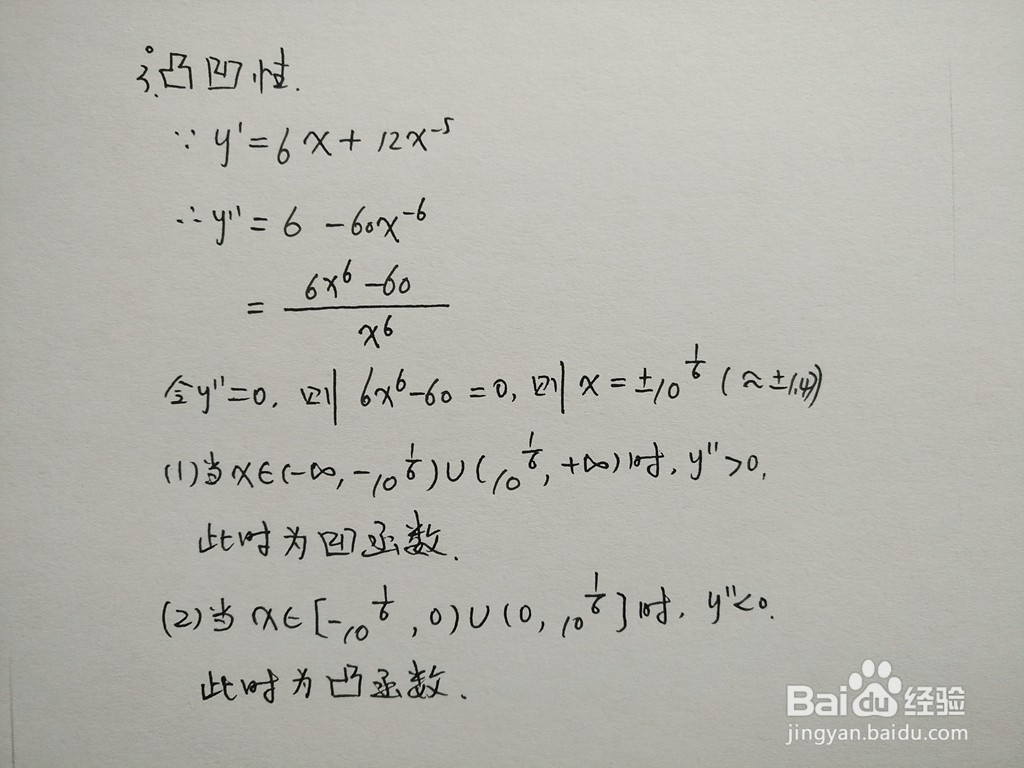 3.°凸凹性.
∵ y'=6x+12x⁻⁵
∴ y''=6-60x⁻⁶
= (6x⁶-60)/x⁶
令y''=0, 则6x⁶-60=0, 则x=±10^(1/6) (≈±1.4)
(1)当x∈(-∞,-10^(1/6))∪(10^(1/6),+∞)时, y''>0,
此时为凹函数.
(2)当x∈[-10^(1/6),0)∪(0,10^(1/6)]时, y''<0.
此时为凸函数.
Baidu经验
jingyan.baidu.com